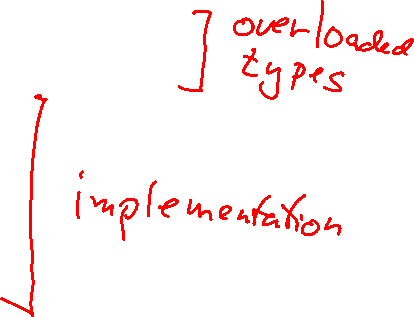 overloaded
types
implementation